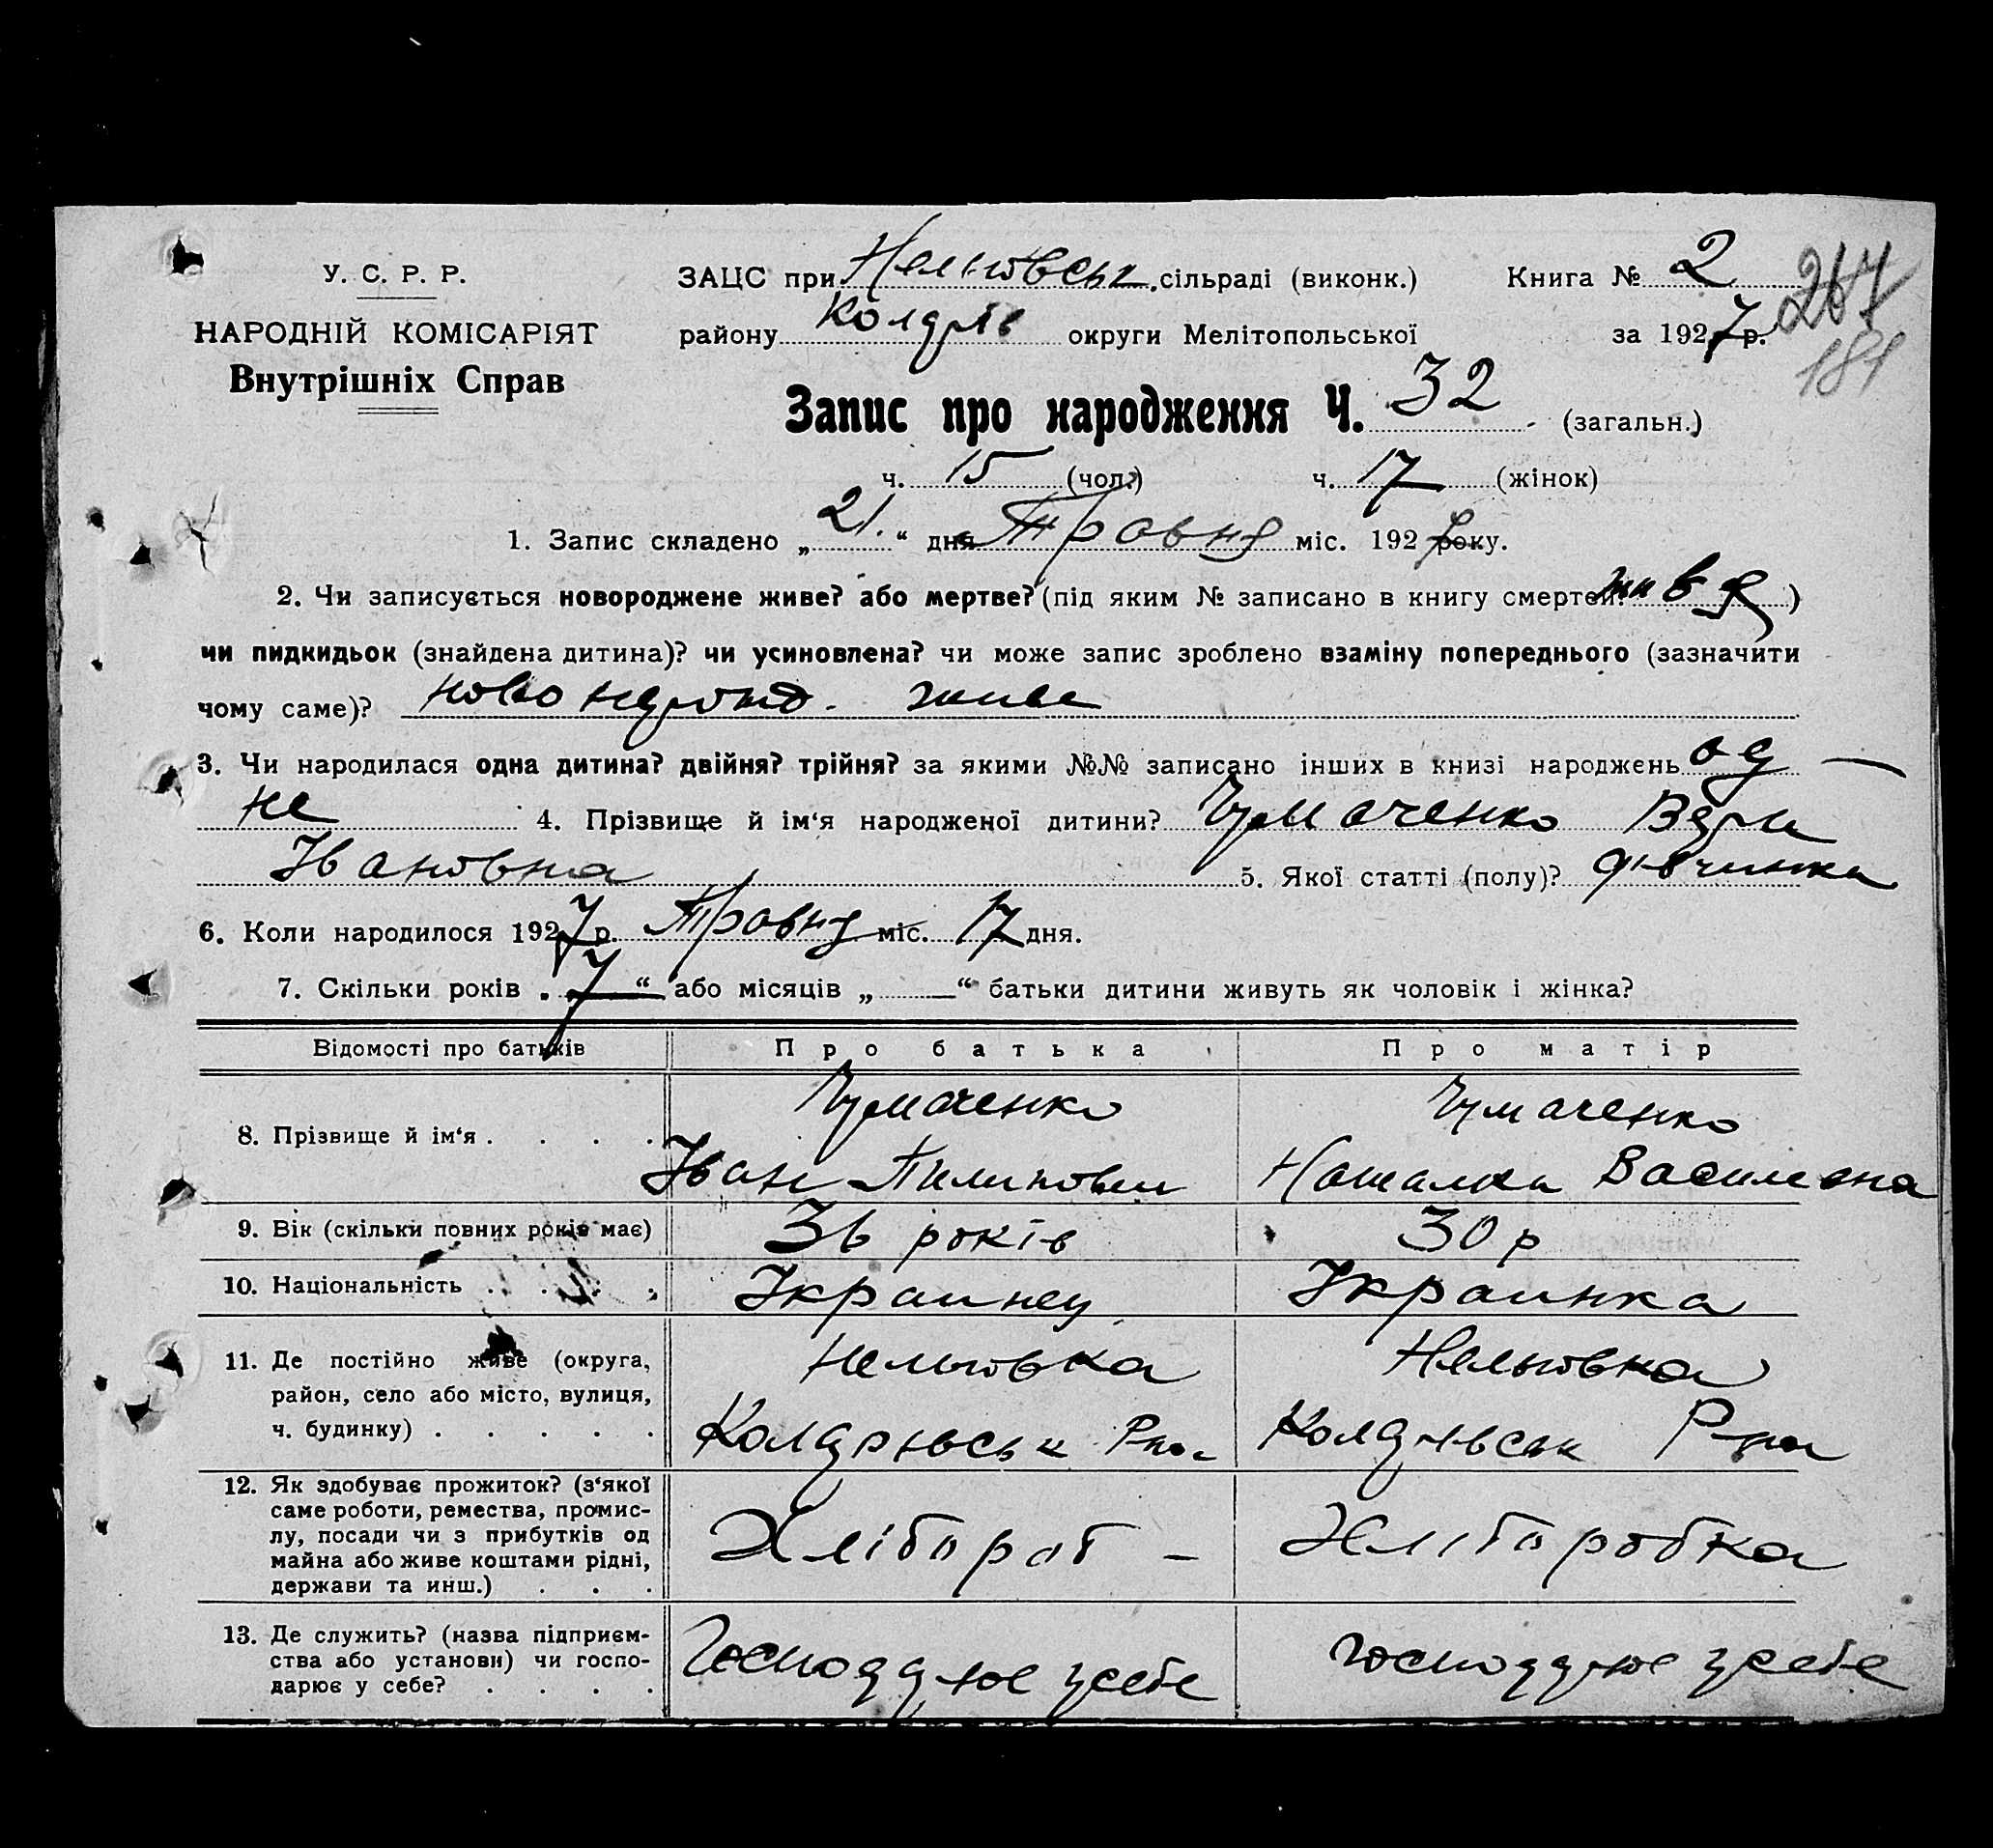 У. С. Р. Р.
НАРОДНІЙ КОМІСАРІЯТ
Внутрішніх Справ
ЗАЦС при Нельговськ. сільраді (виконк.) Книга № 2
району округи Мелітопольської за 1927 р.
267
Запис про народження Ч. 32 (загальн.)
ч. 15 (чол.) ч. 17 (жінок)
1. Запис складено „ 21. “ дня Травня міс. 1927 року.
2. Чи записується новороджене живе? або мертве? (під яким № записано в книгу смертей? )
чи пидкидьок (знайдена дитина)? чи усиновлена? чи може запис зроблено взаміну попереднього (зазначити
чому саме)? живе
3. Чи народилася одна дитина? двійня? трійня? за якими №№ записано інших в книзі народжень од —
не 4. Прізвище й ім‘я народженої дитини? Чумаченко
Івановна 5. Якої статті (полу)? дівчинка
6. Коли народилося 1927 р. Травня міс. 17 дня.
7. Скільки років „ 7 “ або місяців „ — “ батьки дитини живуть як чоловік і жінка?
Відомості про батьків Про батька Про матір
8. Прізвище й ім‘я . . . . Чумаченко Чумаченко
Іван Пилипович Наталка
9. Вік (скільки повних років має) 36 років 30 р
10. Національність . . . . Украинец Украинка
11. Де постійно живе (округа,
район, село або місто, вулиця,
ч. будинку) . . . . .
Нельговка Нельговка
12. Як здобуває прожиток? (з‘якої
саме роботи, ремества, промис-
лу, посади чи з прибутків од
майна або живе коштами рідні,
держави та инш.) . . .
Хлібороб — Хліборобка
13. Де служить? (назва підприєм-
ства або установи) чи госпо-
дарює у себе? . . . .
у себе у себе